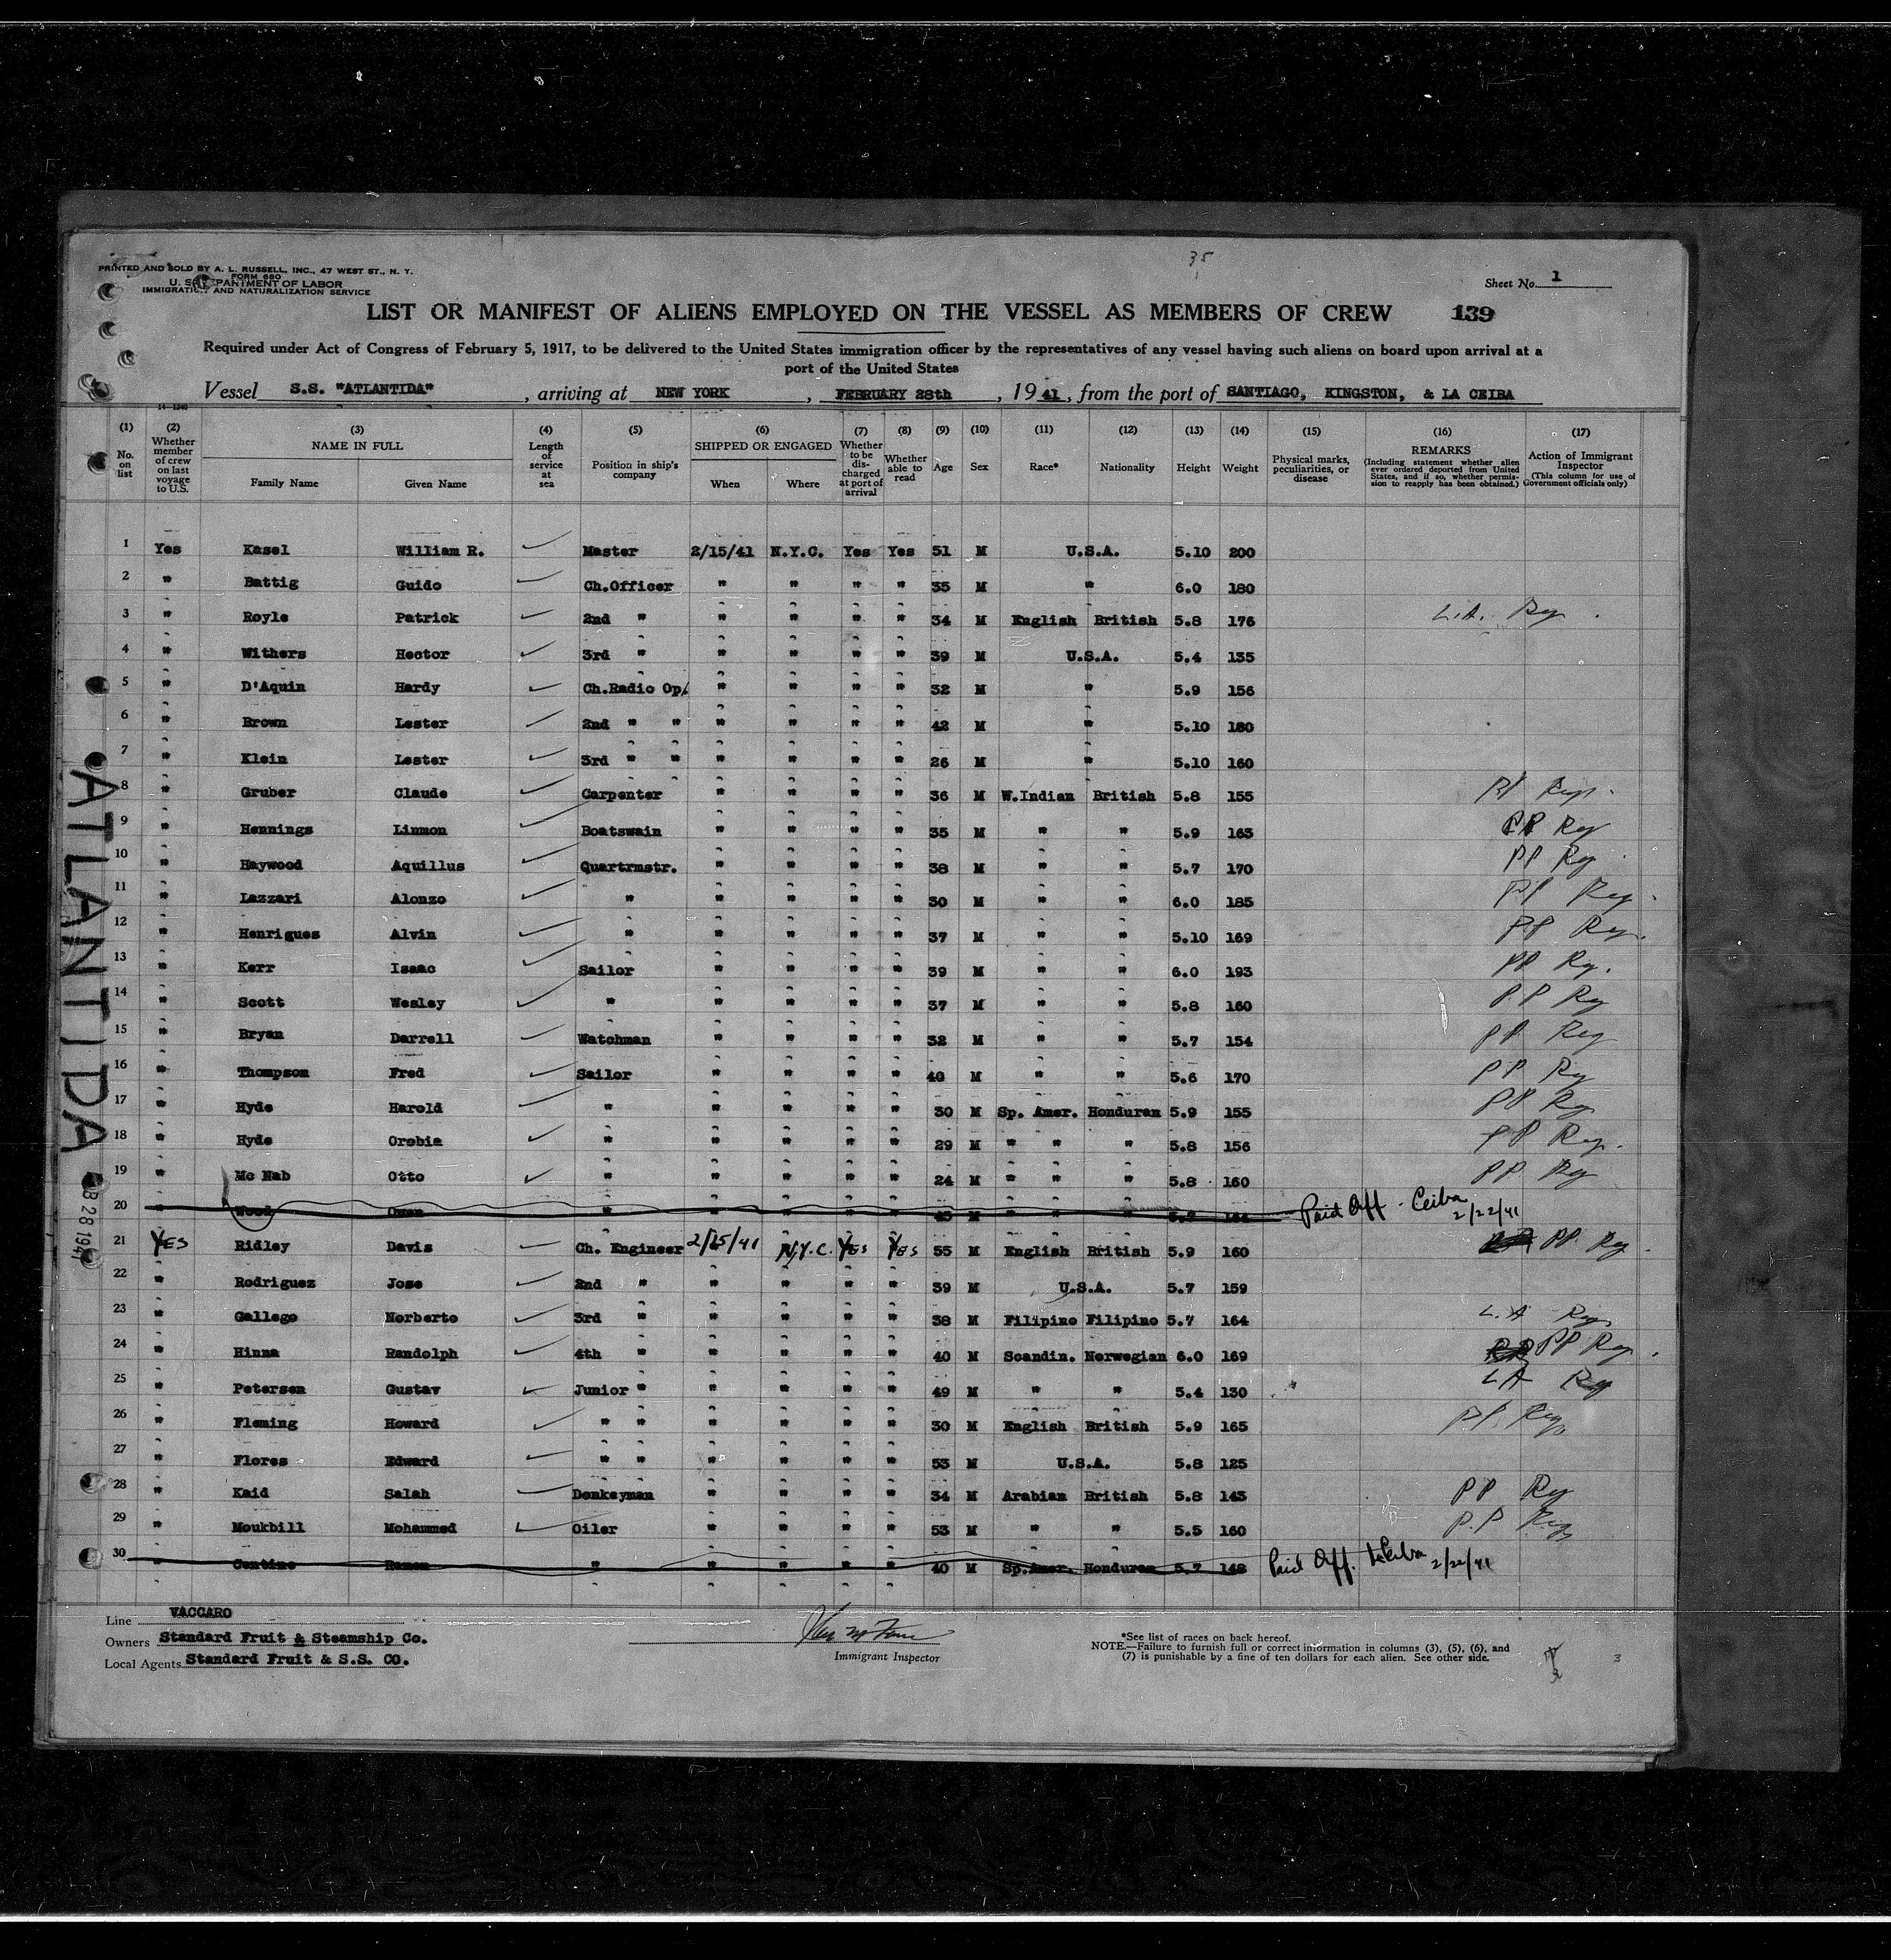 35
PRINTED AND SOLD BY A. L. RUSSELL, INC., 47 WEST ST., N. Y.
FORM 680
U. S. DEPARTMENT OF LABOR
IMMIGRATION AND NATURALIZATION SERVICE
Sheet No. 1
LIST OR MANIFEST OF ALIENS EMPLOYED ON THE VESSEL AS MEMBERS OF CREW 139
Required under Act of Congress of February 5, 1917, to be delivered to the United States immigration officer by the representatives of any vessel having such aliens on board upon arrival at a
port of the United States
Vessel S.S. "ATLANTIDA", arriving at NEW YORK, FEBRUARY 28th, 1941, from the port of SANTIAGO, KINGSTON, & LA CEIBA
(1) No. on list (2) Whether member of crew on last voyage to U.S. (3) NAME IN FULL Family Name Given Name (4) Length of service at sea (5) Position in ship's company (6) SHIPPED OR ENGAGED When Where (7) Whether to be discharged at port of arrival (8) Whether able to read (9) Age (10) Sex (11) Race* (12) Nationality (13) Height (14) Weight (15) Physical marks, peculiarities, or disease (16) REMARKS (Including statement whether alien ever ordered deported from United States, and if so, whether permission to reapply has been obtained.) (17) Action of Immigrant Inspector (This column for use of Government officials only)
1 Yes Kasel William R. Master 2/15/41 N.Y.C. Yes Yes 51 M U.S.A. 5.10 200
2 " Battig Guido Ch.Officer " " " " 35 M " 6.0 180
3 " Royle Patrick 2nd " " " " " 34 M English British 5.8 176 L.A. Reg.
4 " Withers Hector 3rd " " " " " 39 M U.S.A. 5.4 135
5 " D'Aquin Hardy Ch.Radio Op. " " " " 32 M " 5.9 156
6 " Brown Lester 2nd " " " " " " 42 M " 5.10 180
7 " Klein Lester 3rd " " " " " " 26 M " 5.10 160
8 " Gruber Claude Carpenter " " " " 36 M W.Indian British 5.8 155 PP Reg.
9 " Hennings Linmon Boatswain " " " " 35 M " " 5.9 163 PP Reg
10 " Haywood Aquillus Quartrmstr. " " " " 38 M " " 5.7 170 PP Reg
11 " Lazzari Alonzo " " " " " 30 M " " 6.0 185 PP Reg.
12 " Henrigues Alvin " " " " " 37 M " " 5.10 169 PP Reg.
13 " Kerr Isaac Sailor " " " " 39 M " " 6.0 193 PP Reg.
14 " Scott Wesley " " " " " 37 M " " 5.8 160 PP Reg
15 " Bryan Darrell Watchman " " " " 32 M " " 5.7 154 PP Reg
16 " Thompson Fred Sailor " " " " 40 M " " 5.6 170 PP Reg
17 " Hyde Harold " " " " " 30 M Sp. Amer. Honduran 5.9 155 PP Reg
18 " Hyde Orobia " " " " " 29 M " " " 5.8 156 PP Reg.
19 " Mc Nab Otto " " " " " 24 M " " " 5.8 160 PP Reg
20 " Wood Owen " " " " " M " " " Paid Off - Ceiba 2/22/41
21 YES Ridley Davis Ch. Engineer 2/15/41 N.Y.C. YES YES 55 M English British 5.9 160 PP Reg.
22 " Rodriguez Jose 2nd " " " " " 39 M U.S.A. 5.7 159
23 " Gallego Norberto 3rd " " " " " 38 M Filipino Filipino 5.7 164 L.A Reg
24 " Hinna Randolph 4th " " " " " 40 M Scandin. Norwegian 6.0 169 PP Reg.
25 " Petersen Gustav Junior " " " " " 49 M " " 5.4 130 LA Reg
26 " Fleming Howard " " " " " " 30 M English British 5.9 165 PP. Reg
27 " Flores Edward " " " " " " 53 M U.S.A. 5.8 125
28 " Kaid Salah Donkeyman " " " " 34 M Arabian British 5.8 143 PP Reg
29 " Moukbill Mohammed Oiler " " " " 53 M " " 5.5 160 P.P Reg
30 " Ramon " " " " " 40 M Sp.Amer. Honduran 5.7 148 Paid Off. Ceiba 2/22/41
ATLANTIDA
28 1941
Line VACCARO
Owners Standard Fruit & Steamship Co.
Local Agents Standard Fruit & S.S. CO.
Immigrant Inspector
*See list of races on back hereof.
NOTE.—Failure to furnish full or correct information in columns (3), (5), (6), and
(7) is punishable by a fine of ten dollars for each alien. See other side.
3